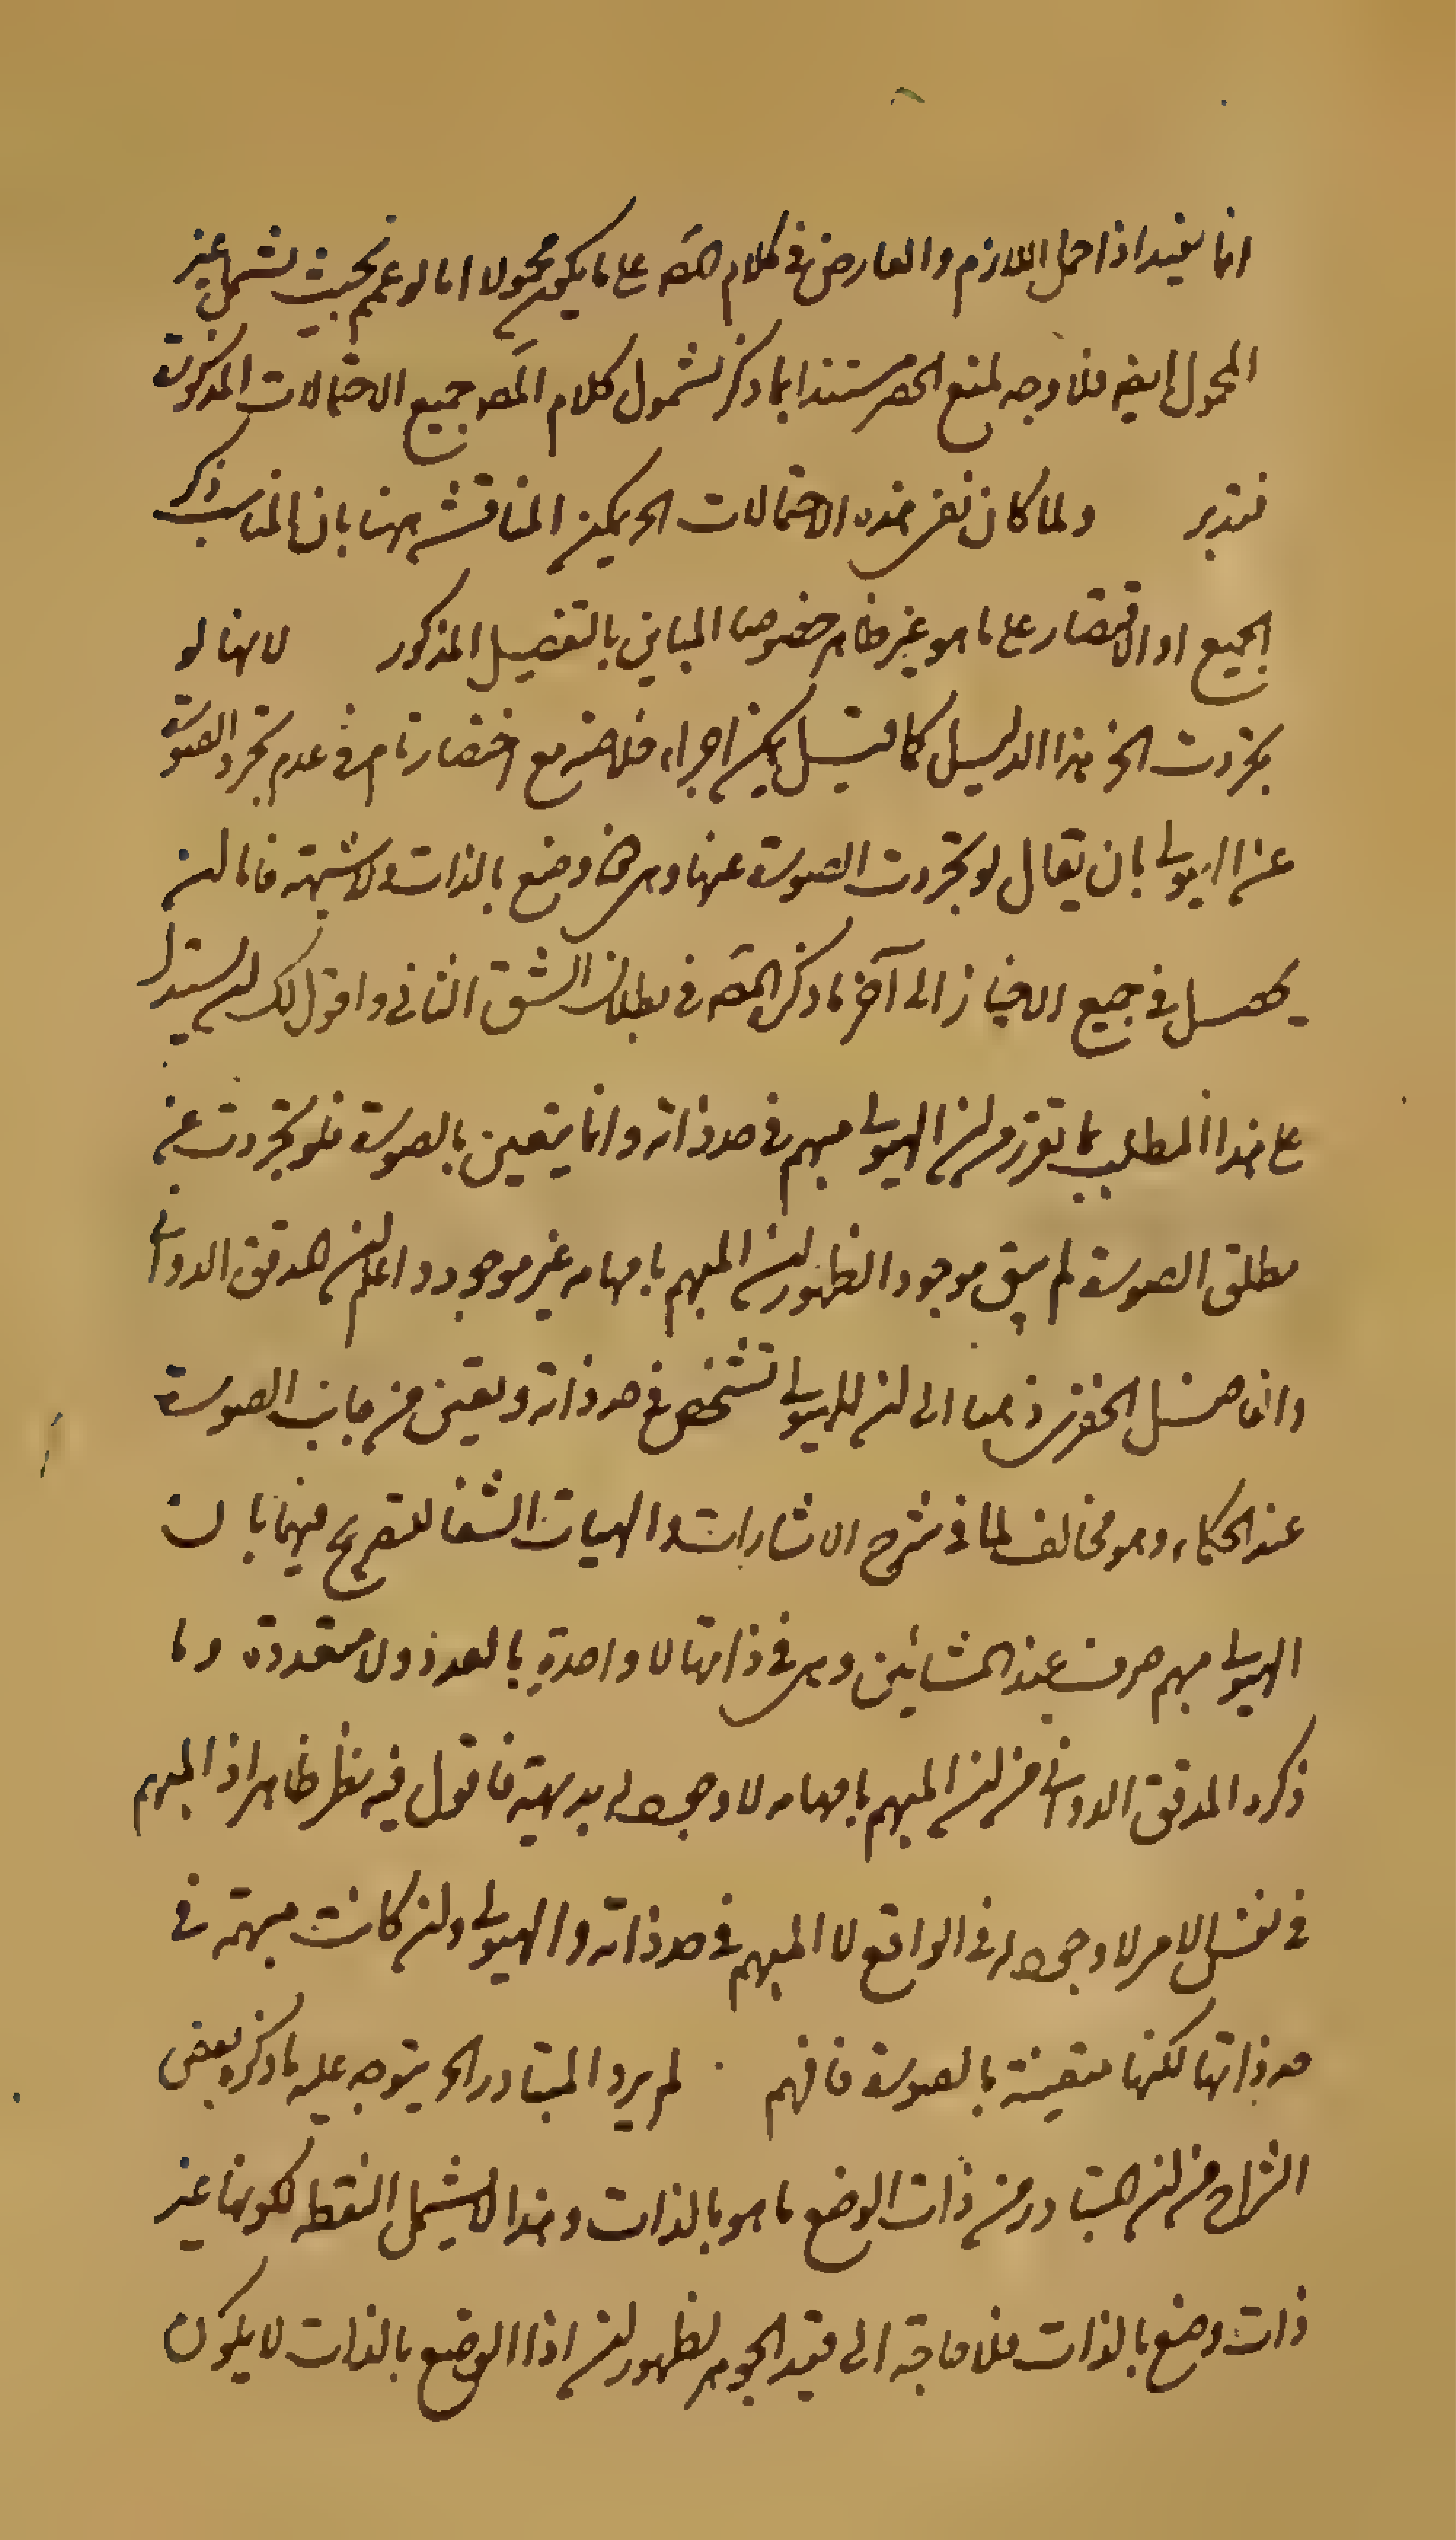 انما يفيد اذا حمل اللازم والعارض في كلام المصه على ما يكون محمولا اما لو عمم بحيث يشمل غير
المحمول ايضه فلا وجه لمنع الحصر مستندا بما ذكر لشمول كلام المصه جميع الاحتمالات المذكورة
فتدبر ولما كان نفس هذه الاحتمالات الخ يمكن المناقشه ههنا بان المناسب ذكر
الجميع او الاقتصار على ما هو غير ظاهر خصوصا المباين بالتفصيل المذكور لانها لو
تجردت الخ هذا الدليل كما قيل يمكن اجراه فلاصه مع اختصار تام في عدم تجرد الصورة
عن الهيولى بان يقال لو تجردت الصورة عنها وهي ذات وضع بالذات ولا شبهة فاما ان
يحصل في جميع الاحياز الى آخر ما ذكره المصه في بطلان الشق الثاني واقول لك ان يستدل
على هذا المطلب بما تقرر من ان الهيولى مبهم في حد ذاته وانما يتعين بالصورة فلو تجردت عن
مطلق الصورة لم يبق موجودا لظهور ان المبهم بابهامه غير موجود واعلم ان المدقق الدواني
والفاضل الخفري ذهبا الى ان للهيولى تشخص في حد ذاته وتعين من جانب الصورة
عند الحكماء وهو مخالف لما في شرح الاشارات والهيات الشفا للتصريح فيهما بان
الهيولى مبهم صرف عند المشائين وهي في ذاتها لا واحدة بالعدد ولا متعددة وما
ذكره المدقق الدواني من ان المبهم بابهامه لا وجود له بديهية فاقول فيه نظر ظاهر اذ المبهم
في نفس الامر لا وجود له في الواقع لا المبهم في حد ذاته والهيولى وان كانت مبهمة في
حد ذاتها لكنها متعينة بالصورة فافهم لم يرد المتبادر الخ يتوجه عليه ما ذكره بعض
الشراح من ان المتبادر من ذات الوضع ما هو بالذات وهذا لا يشمل النقطه لكونها غير
ذات وضع بالذات فلا حاجة الى قيد الجوهر لظهور ان اذا الوضع بالذات لا يكون